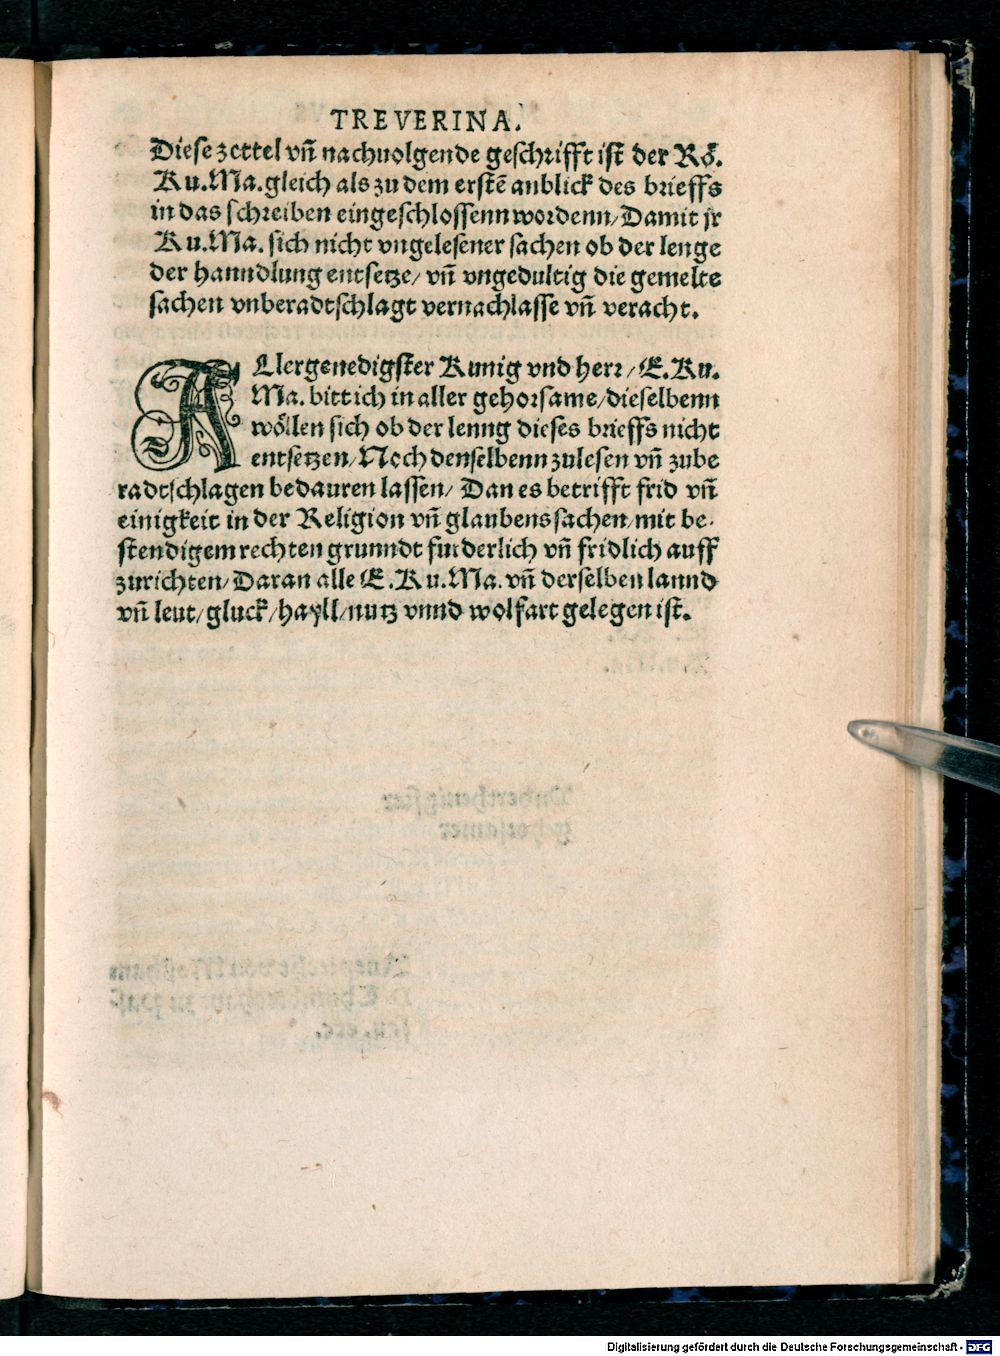 TREVERINA.
Diese zettel vñ nachuolgende geschrifft ist der Rö.
Ku.Ma.gleich als zu dem erstē anblick des brieffs
in das schreiben eingeschlossenn wordenn/Damit jr
Ku.Ma. sich nicht vngelesener sachen ob der lenge
der hanndlung entsetze/ vñ vngedultig die gemelte
sachen vnberadtschlagt vernachlasse vñ veracht.
ALlergenedigster Kunig vnd herr/ E.Ku.
Ma. bitt ich in aller gehorsame/dieselbenn
wöllen sich ob der lenng dieses brieffs nicht
entsetzen/Noch denselbenn zulesen vñ zube
radtschlagen bedauren lassen/ Dan es betrifft frid vñ
einigkeit in der Religion vñ glaubens sachen/mit be-
stendigem rechten grunndt furderlich vñ fridlich auff
zurichten/Daran alle E.Ku.Ma. vñ derselben lannd
vñ leut/gluck/hayll/nutz vnnd wolfart gelegen ist.
Digitalisierung gefördert durch die Deutsche Forschungsgemeinschaft - DFG